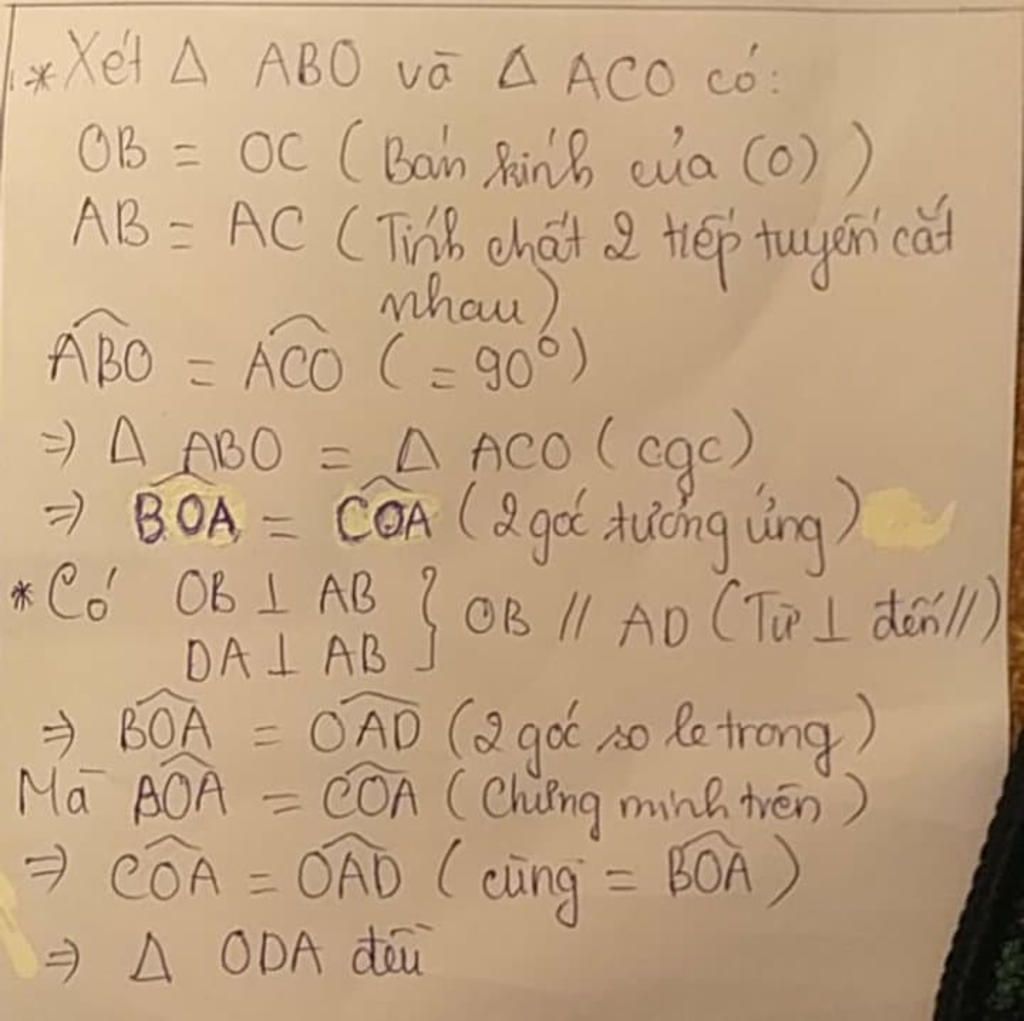 * Xét Δ ABO và Δ ACO có:
OB = OC (Bán kính của (O))
AB = AC (Tính chất 2 tiếp tuyến cắt
nhau)
\widehat{ABO} = \widehat{ACO} (= 90°)
=> Δ ABO = Δ ACO (cgc)
=> \widehat{BOA} = \widehat{COA} (2 góc tương ứng)
* Có OB ⊥ AB } OB // AD (Từ ⊥ đến //)
DA ⊥ AB
=> \widehat{BOA} = \widehat{OAD} (2 góc so le trong)
Mà \widehat{BOA} = \widehat{COA} (Chứng minh trên)
=> \widehat{COA} = \widehat{OAD} (cùng = \widehat{BOA})
=> Δ ODA đều